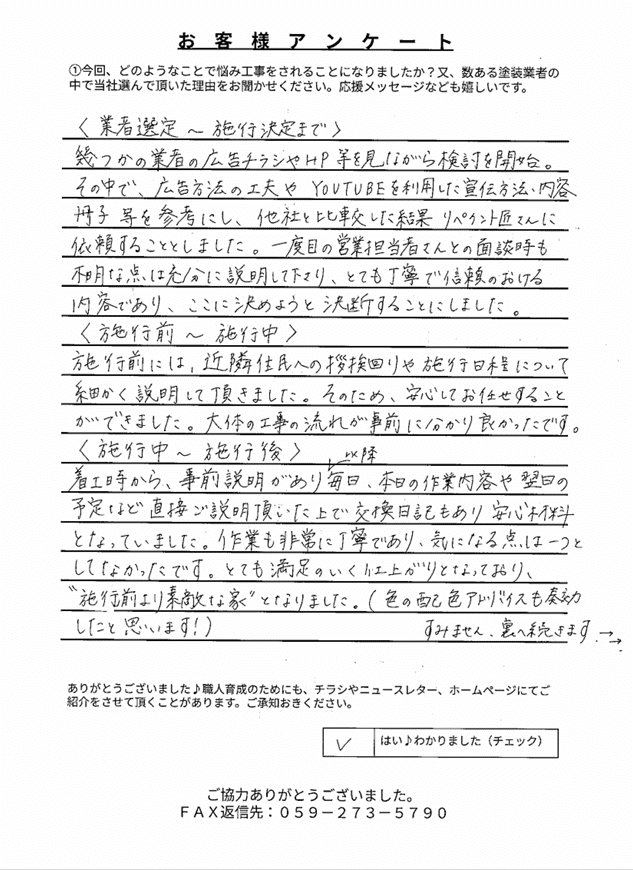 お客様アンケート
①今回、どのようなことで悩み工事をされることになりましたか？又、数ある塗装業者の
中で当社選んで頂いた理由をお聞かせください。応援メッセージなども嬉しいです。
〈 業者選定 ～ 施行決定まで 〉
幾つかの業者の広告チラシやHP等を見ながら検討を開始。
その中で、広告方法の工夫や YOUTUBEを利用した宣伝方法、内容
冊子等を参考にし、他社と比較した結果 リペイント匠さんに
依頼することとしました。一度目の営業担当者さんとの面談時も
不明な点は充分に説明して下さり、とても丁寧で信頼のおける
内容であり、ここに決めようと決断することにしました。
〈 施行前 ～ 施行中 〉
施行前には、近隣住民への挨拶回りや施行日程について
細かく説明して頂きました。そのため、安心してお任せすること
ができました。大体の工事の流れが事前に分かり良かったです。
〈 施行中 ～ 施行後 〉
以降
着工時から、事前説明があり毎日、本日の作業内容や翌日の
予定など直接ご説明頂いた上で交換日記もあり 安心材料
となっていました。作業も非常に丁寧であり、気になる点は一つと
してなかったです。とても満足のいく仕上がりとなっており、
"施行前より素敵な家"となりました。（色の配色アドバイスも奏効
したと思います！）
すみません、裏へ続きます →→
ありがとうございました♪職人育成のためにも、チラシやニュースレター、ホームページにてご
紹介をさせて頂くことがあります。ご承知おきください。
✓ はい♪わかりました（チェック）
ご協力ありがとうございました。
ＦＡＸ返信先：０５９－２７３－５７９０